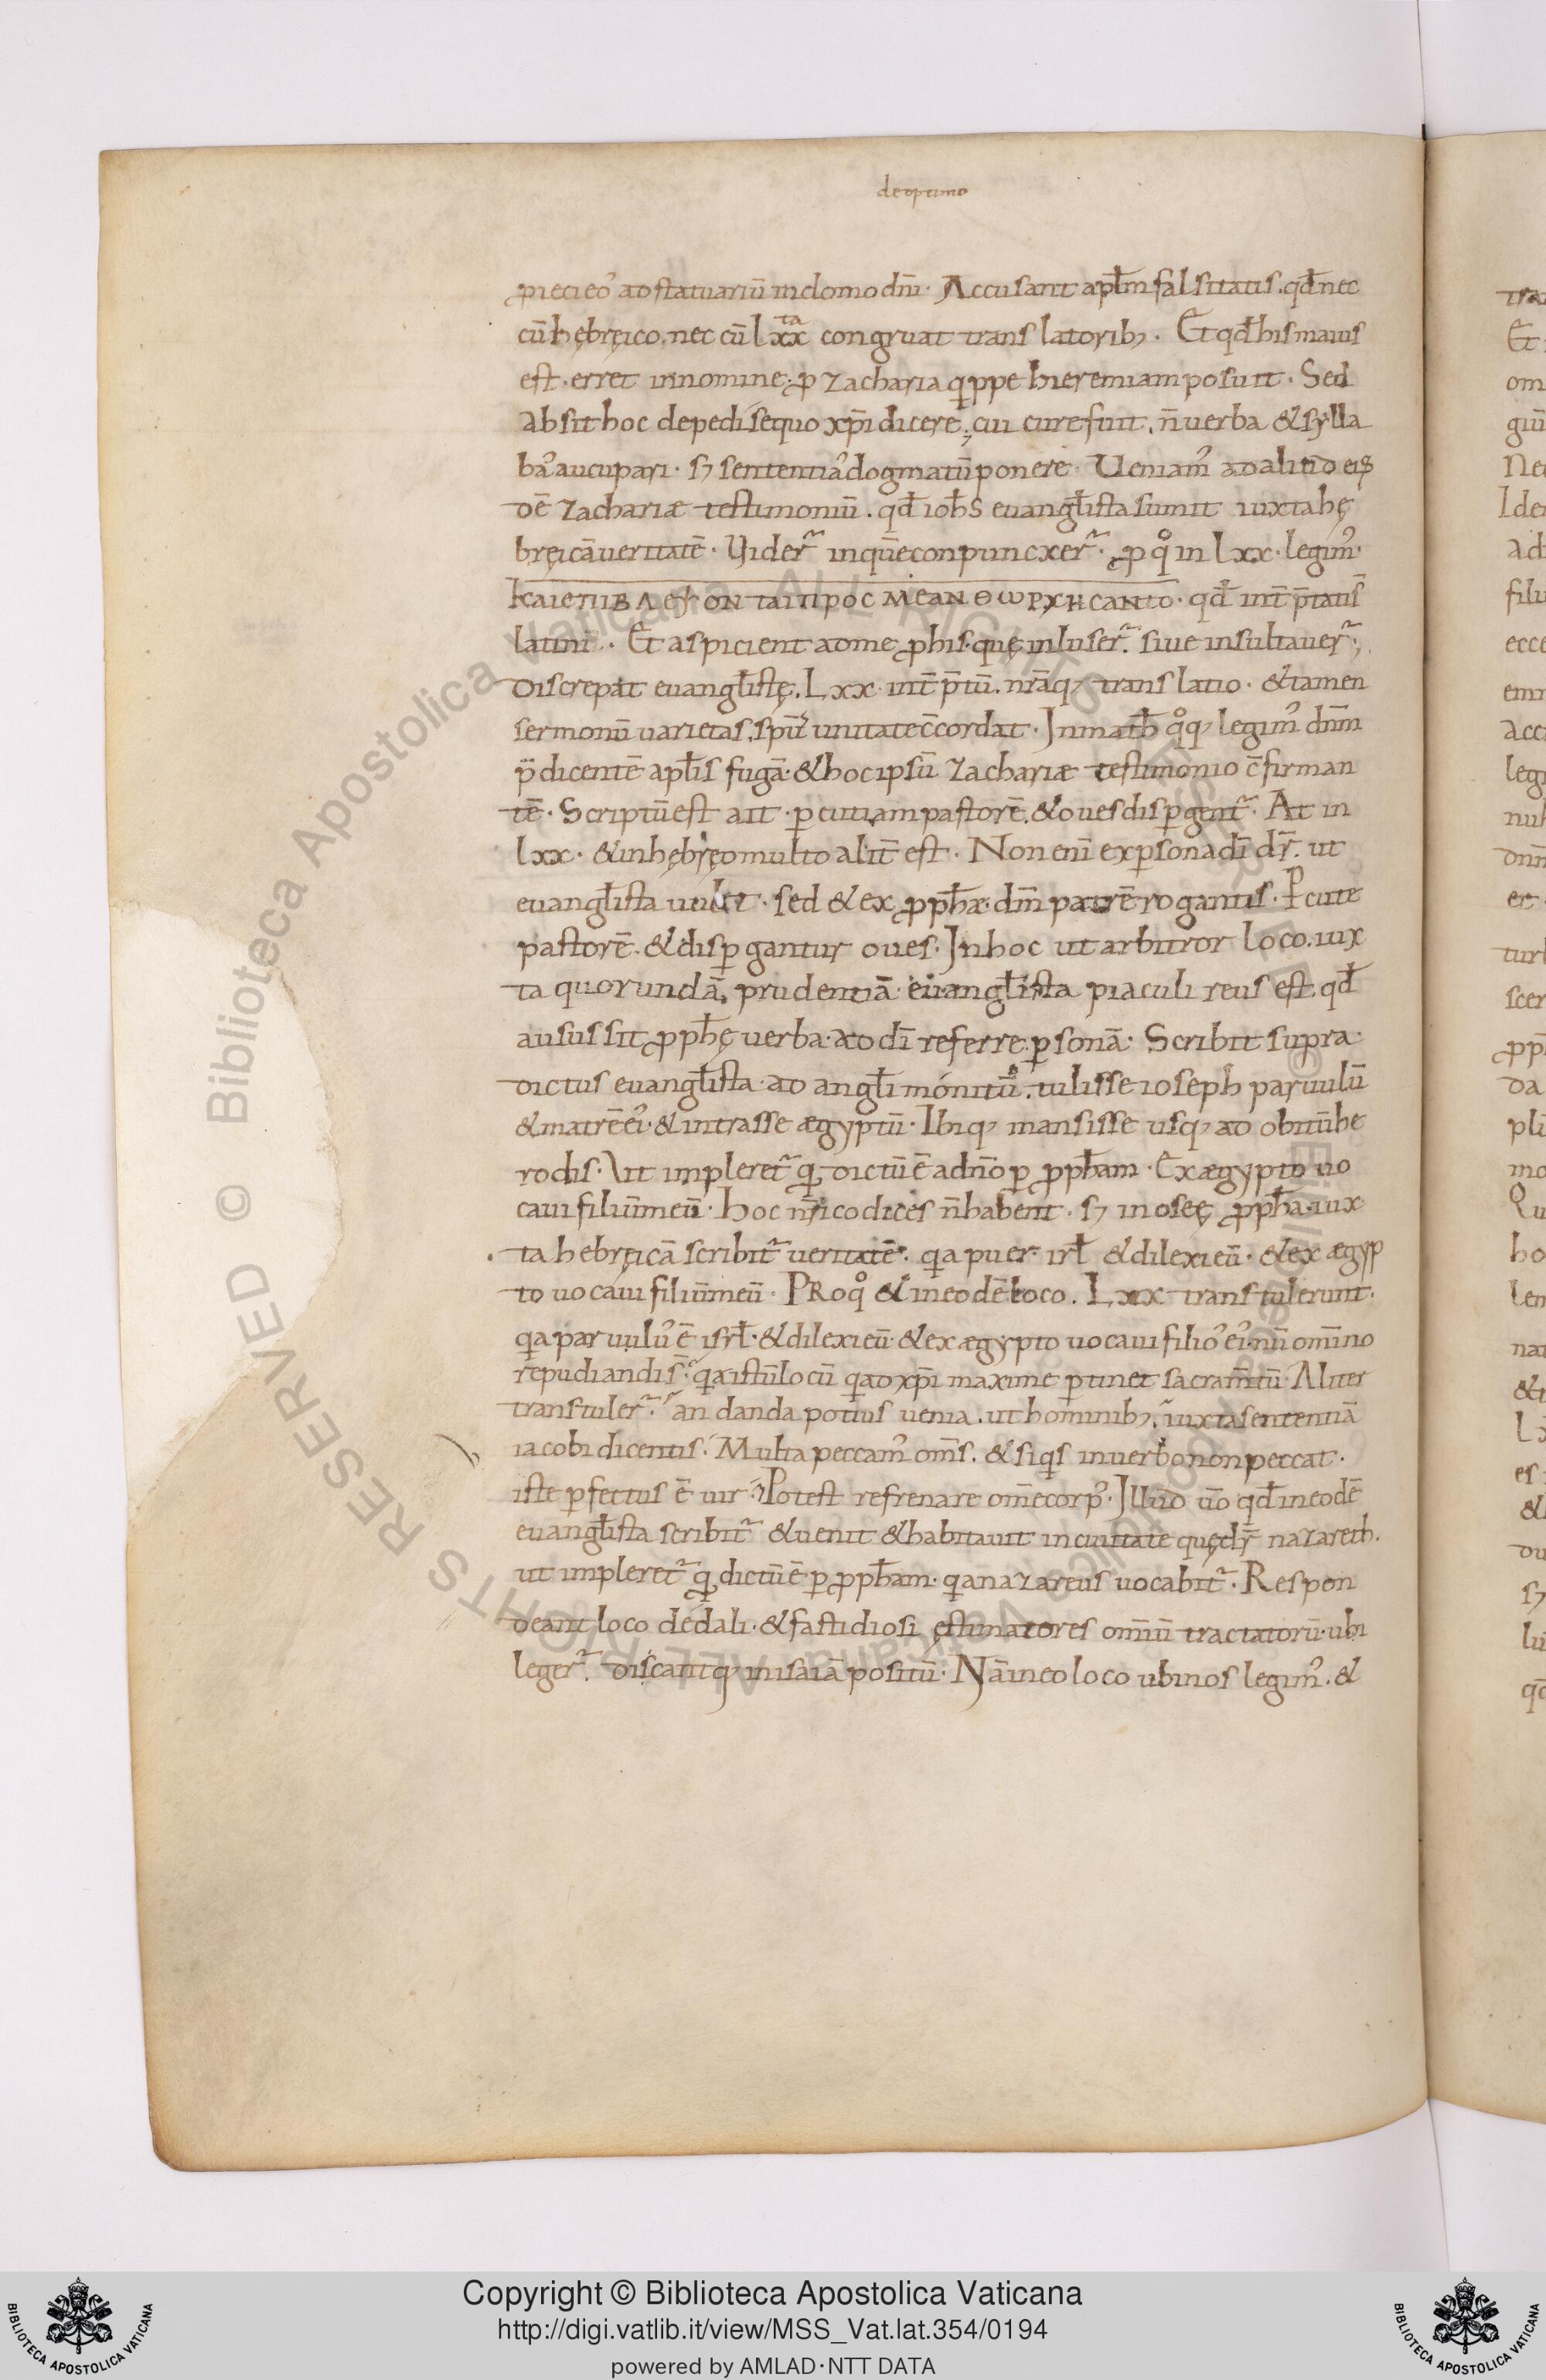 de optimo
ꝓieci eo᷒ ad statuariū in domo dn̄i. Accusant apłm falsitatis. qđ nec
cū hębręico. nec cū lxxᵗᵃ congruat translatorib;. Et qđ his maius
est. erret in nomine. ꝓ zacharia qͥppe hieremiam posuit. Sed
absit hoc de pedisequo xp̄i dicere. cui curę fuit. n̄ uerba & sylla
ba᷒ aucupari. sꝫ sententia᷒ dogmatū ponere. Ueniam᷒ ad aliud eiꝰ
dē zachariæ testimoniū. qđ ioħs euangłista sumit iuxta hę
bręicā ueritatē. Uider̄ in quē conpuncxer̄. ꝓ qͦ in lxx. legim᷒.
ΚαιεπιΒΛεψονταιπροcΜεανθωρχηcαντο. qđ int̄p̄tati s̄
latini. Et aspicient ad me ꝓ his. quę inluser̄. siue insultauer̄;.
Discrepat euangłistę. Lxx. int̄p̄tū. nr̄aq; translatio. & tamen
sermonū uarietas. sp̄u unitate c̄cordat. In math̄ qͦq; legim᷒ dn̄m
p̄dicentē apłis fugā. & hoc ipsū zachariæ testimonio c̄firman
tē. Scriptū est ait. ꝑcutiam pastorē. & oues disꝑgent̄. At in
lxx. & in hębręo multo alit̄ est. Non enī ex ꝑsona dī dr̄. ut
euangłista uult. sed & ex ꝓpħæ. dm̄ patrē rogantis. Ꝑcute
pastorē. & disꝑgantur oues. In hoc ut arbitror loco. iux
ta quorundā. prudentiā euangłista piaculi reus est. qđ
ausus sit ꝓpħę uerba. ad dī referre ꝑsonā. Scribit supra
dictus euangłista. ad angłi mónitū. tulisse ioseph paruulū
& matrē ei᷒. & intrasse ægyptū. Ibiq; mansisse usq; ad obitū he
rodis. Ut impleret̄ qͩ dictū ē a dn̄o ꝑ ꝓpħam. Ex ægypto uo
caui filiū meū. Hoc nr̄i codices n̄ habent. sꝫ in oseę ꝓpħa. iux
ta hebręicā scribit̄ ueritatē. qͥa puer irł & dilexi eū. & ex ægyp
to uocaui filiū meū. PRo qͦ & in eodē loco. Lxx transtulerunt.
qͥa paruulu᷒ ē isrł. & dilexi eū. & ex ægypto uocaui filio᷒ ei᷒. nū om̄ino
repudiandi s̄. qͥa istū locū qͥ ad xp̄i maxime ꝑtinet sacram̄tū. Aliter
transtuler̄. an danda potius uenia. ut hominib;. iuxta sententiā
iacobi dicentis. Multa peccam᷒ om̄s. & siqͥs in uerbo non peccat.
iste ꝑfectus ē uir. Potest refrenare om̄e corp᷒. Illud u̅o qđ in eodē
euangłista scribit̄ & uenit & habitauit in ciuitate quę dr̄ nazareth.
ut impleret̄ qͩ dictū ē ꝑ ꝓpħam. qͥa nazareus uocabit̄. Respon
deant loco dędali. & fastidiosi ęstimatores om̄iū tractatorū. ubi
leger̄. discantq; in isaiā positū. Nā in eo loco ubi nos legim᷒. &
Copyright © Biblioteca Apostolica Vaticana
http://digi.vatlib.it/view/MSS_Vat.lat.354/0194
powered by AMLAD·NTT DATA